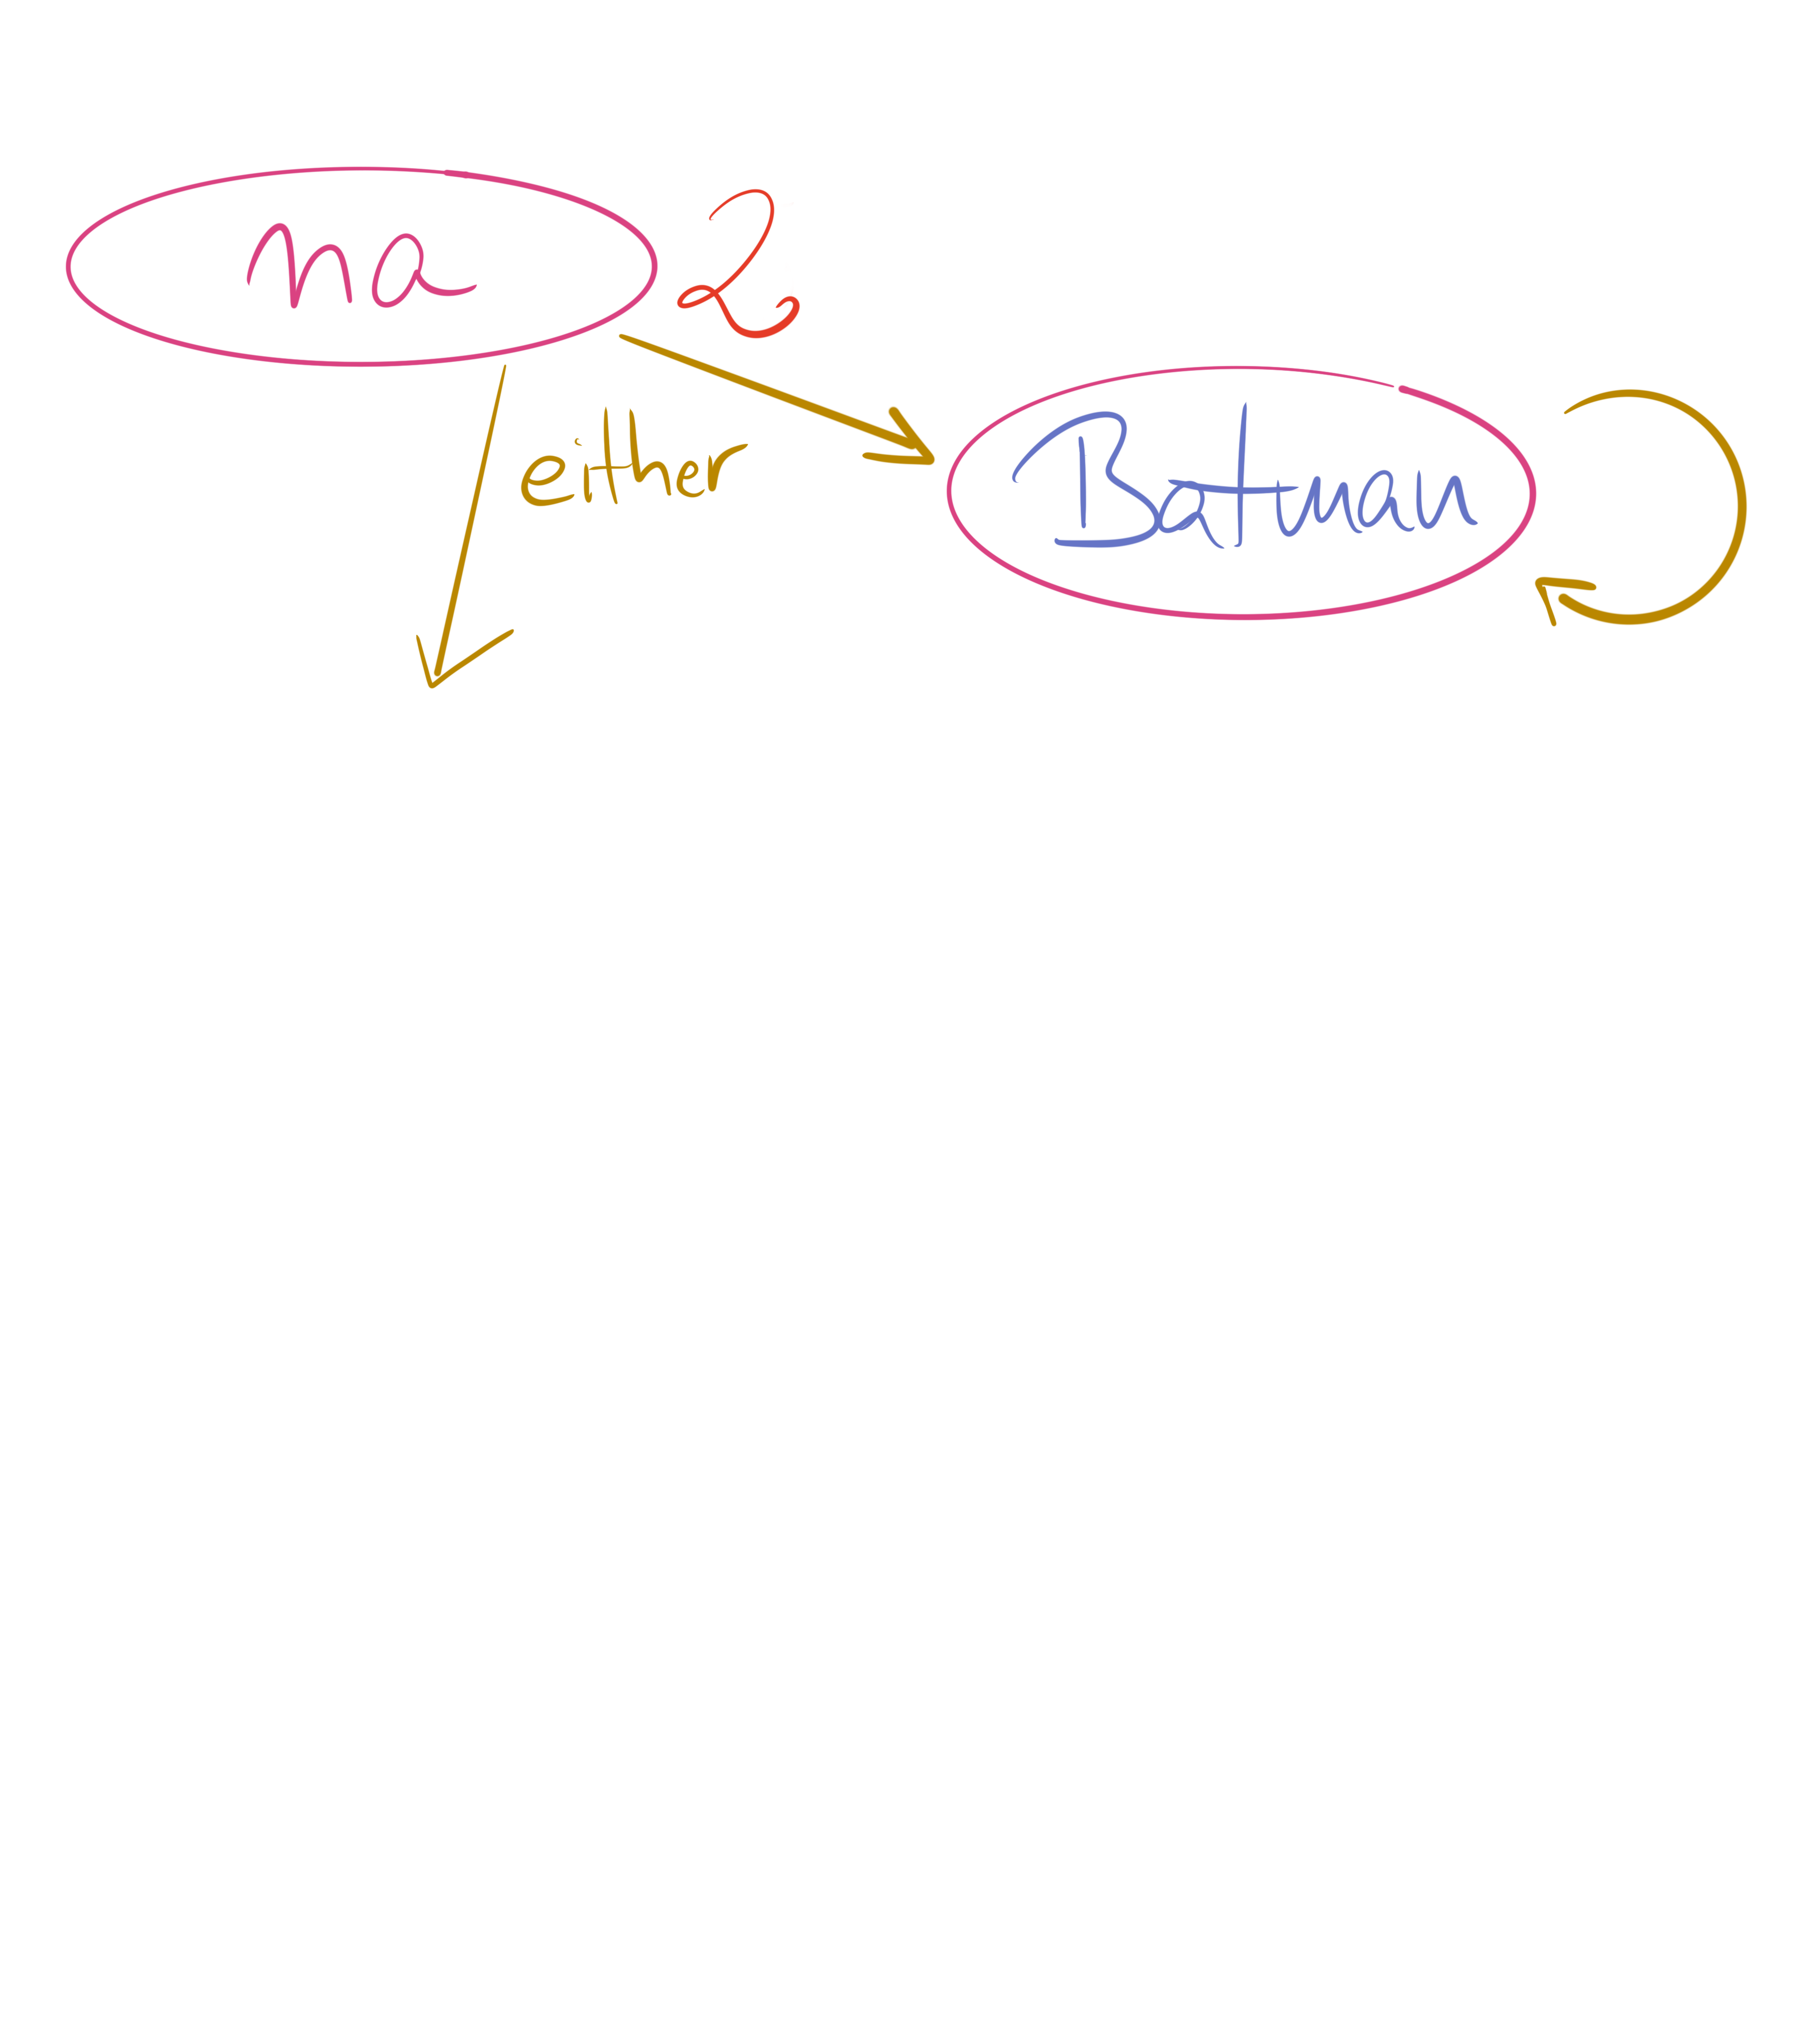 na 2
either
Batman